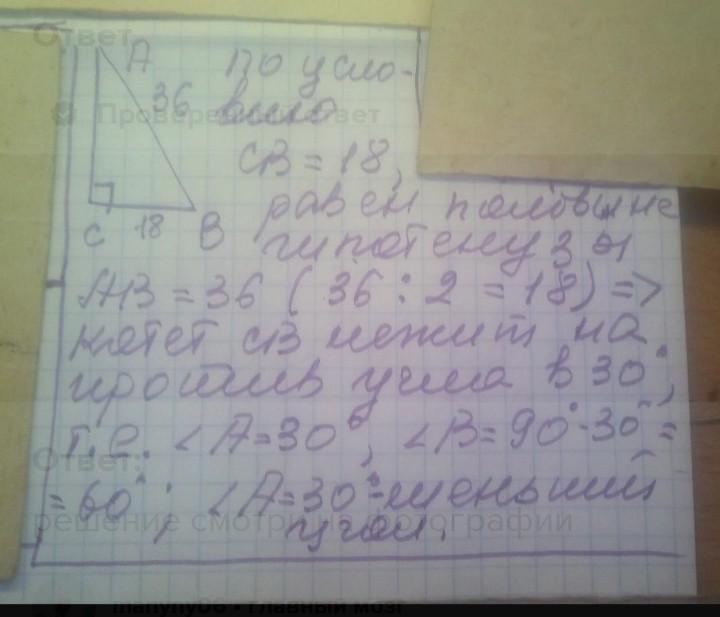 Ответ
A По усло-
36 вию
Проверенный ответ
CB = 18,
равен половине
C 18 B гипотенузы
AB = 36 (36 : 2 = 18) =>
катет CB лежит на
против угла в 30°,
т.е. ∠A=30°, ∠B=90°-30°=
Ответ:
=60°; ∠A=30°-меньший
решение смотри на фотографии
угол.
главный мозг